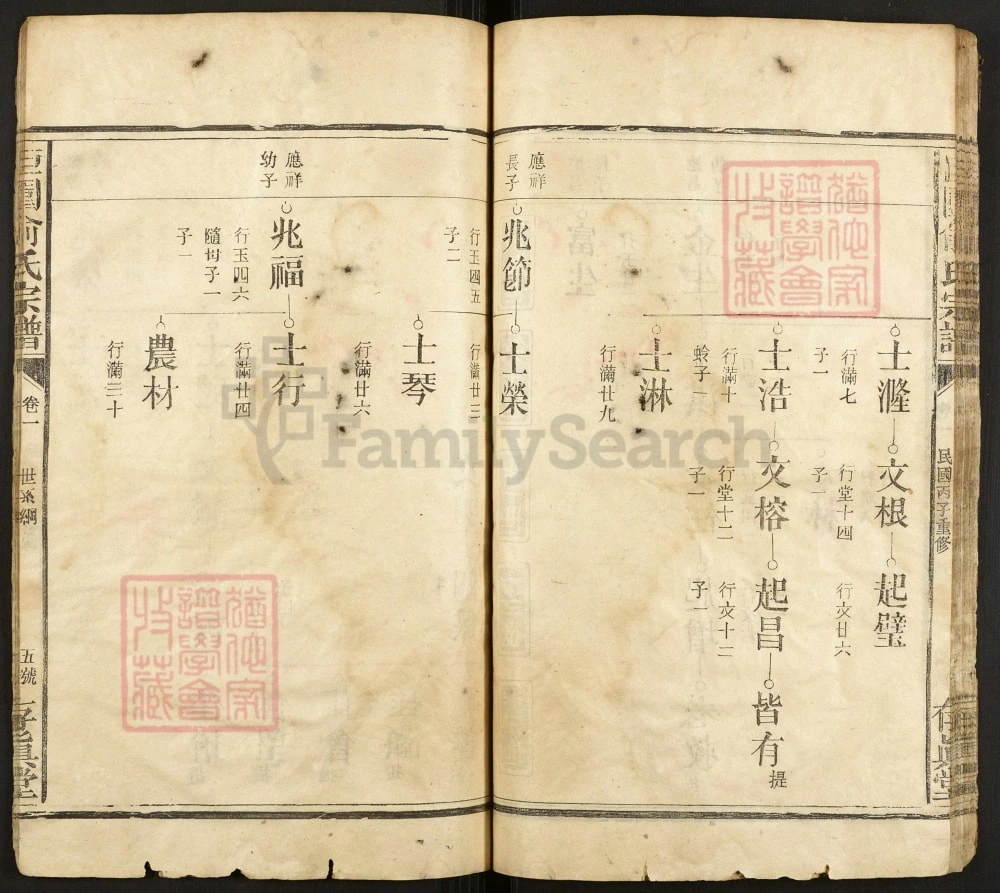 民國丙子重修
士㵮
行滿七
子一
文根
行堂十四
子一
起璧
行文廿六
士浩
行滿十
蛉子一
文榕
行堂十二
子一
起昌
行文十三
子一
皆有 提
士淋
行滿廿九
應祥
長子
兆節
行玉四五
子二
士榮
行滿廿三
士琴
行滿廿六
應祥
幼子
兆福
行玉四六
隨母子一
子一
士行
行滿廿四
農材
行滿三十
俞氏宗譜
卷一
世系綱
五號
存真堂
FamilySearch